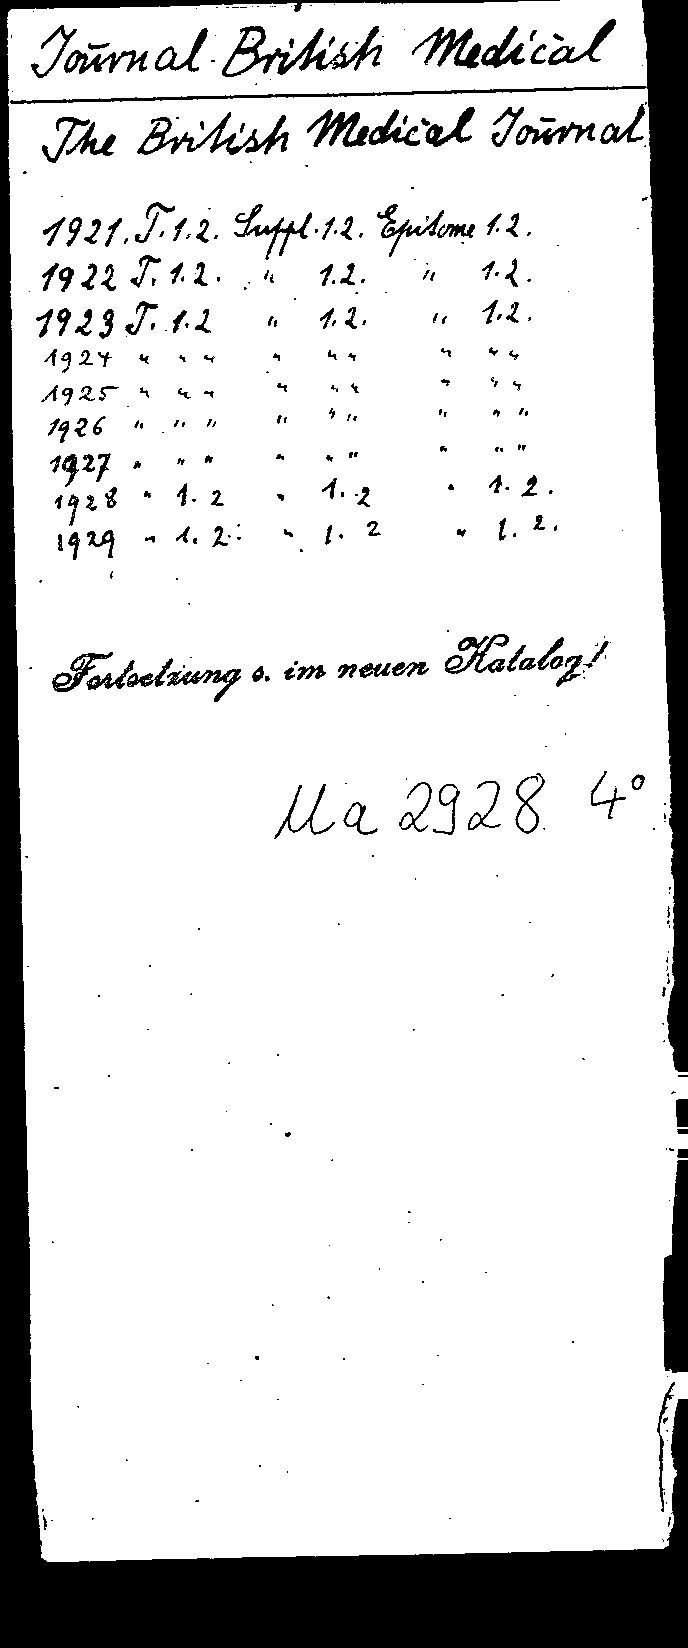 Journal British Medical
The British Medical Journal
1921. T. 1.2. Suppl. 1.2. Epitome 1.2.
1922 T. 1.2. " 1.2. " 1.2.
1923 T. 1.2 " 1.2. " 1.2.
1924 " " " " " " " " "
1925 " " " " " " " " "
1926 " " " " " " " " "
1927 " " " " " " " " "
1928 " 1. 2 " 1. 2 " 1. 2.
1929 " 1. 2. " 1. 2 " 1. 2.
Fortsetzung s. im neuen Katalog!
Ma 2928 4°